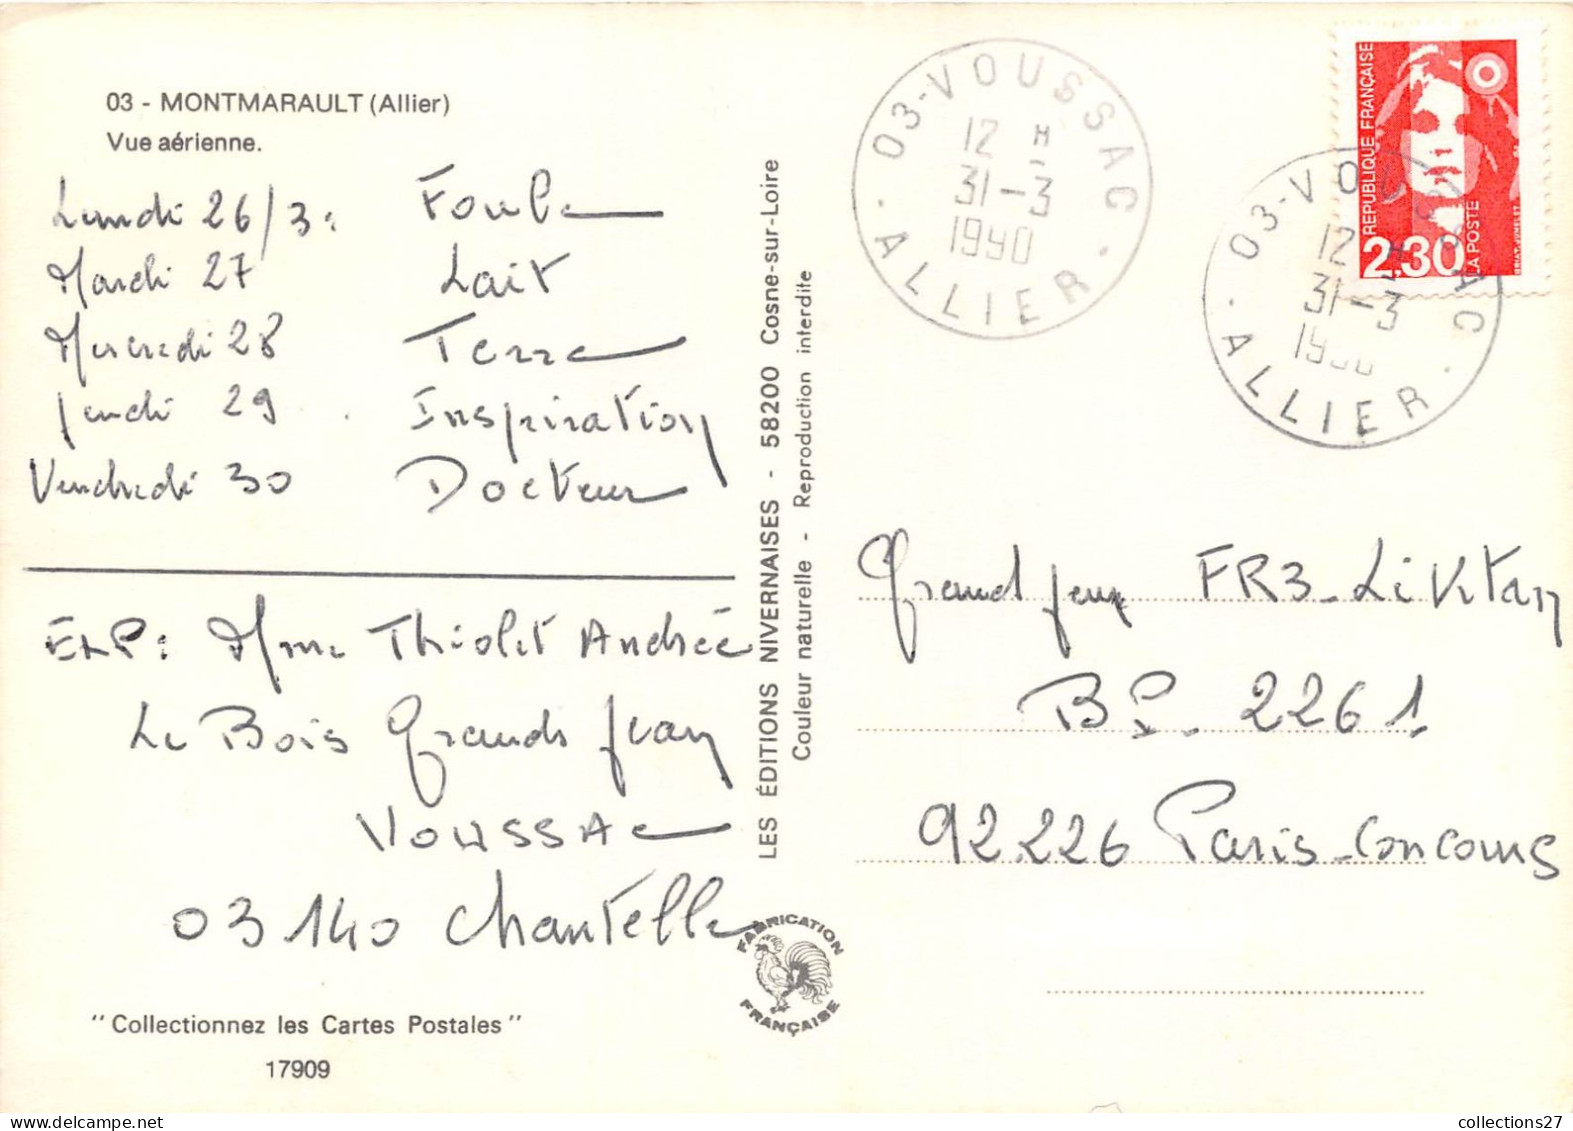 03 - MONTMARAULT (Allier)
Vue aérienne.
Lundi 26/3 : Foule
Mardi 27 Lait
Mercredi 28 Terre
Jeudi 29 Inspiration
Vendredi 30 Docteur
EXP : Mme Thiolet Andrée
Le Bois Grands Jean
VOUSSAC
03140 Chantelle
"Collectionnez les Cartes Postales"
17909
LES ÉDITIONS NIVERNAISES - 58200 Cosne-sur-Loire
Couleur naturelle - Reproduction interdite
FABRICATION
FRANÇAISE
03-VOUSSAC
12 H
31-3
1990
ALLIER
RÉPUBLIQUE FRANÇAISE
2,30
LA POSTE
03-VOUSSAC
12 H
31-3
ALLIER
Grand jeux FR3_Likitan
BP_2261
92.226 Paris_Concours
collections27